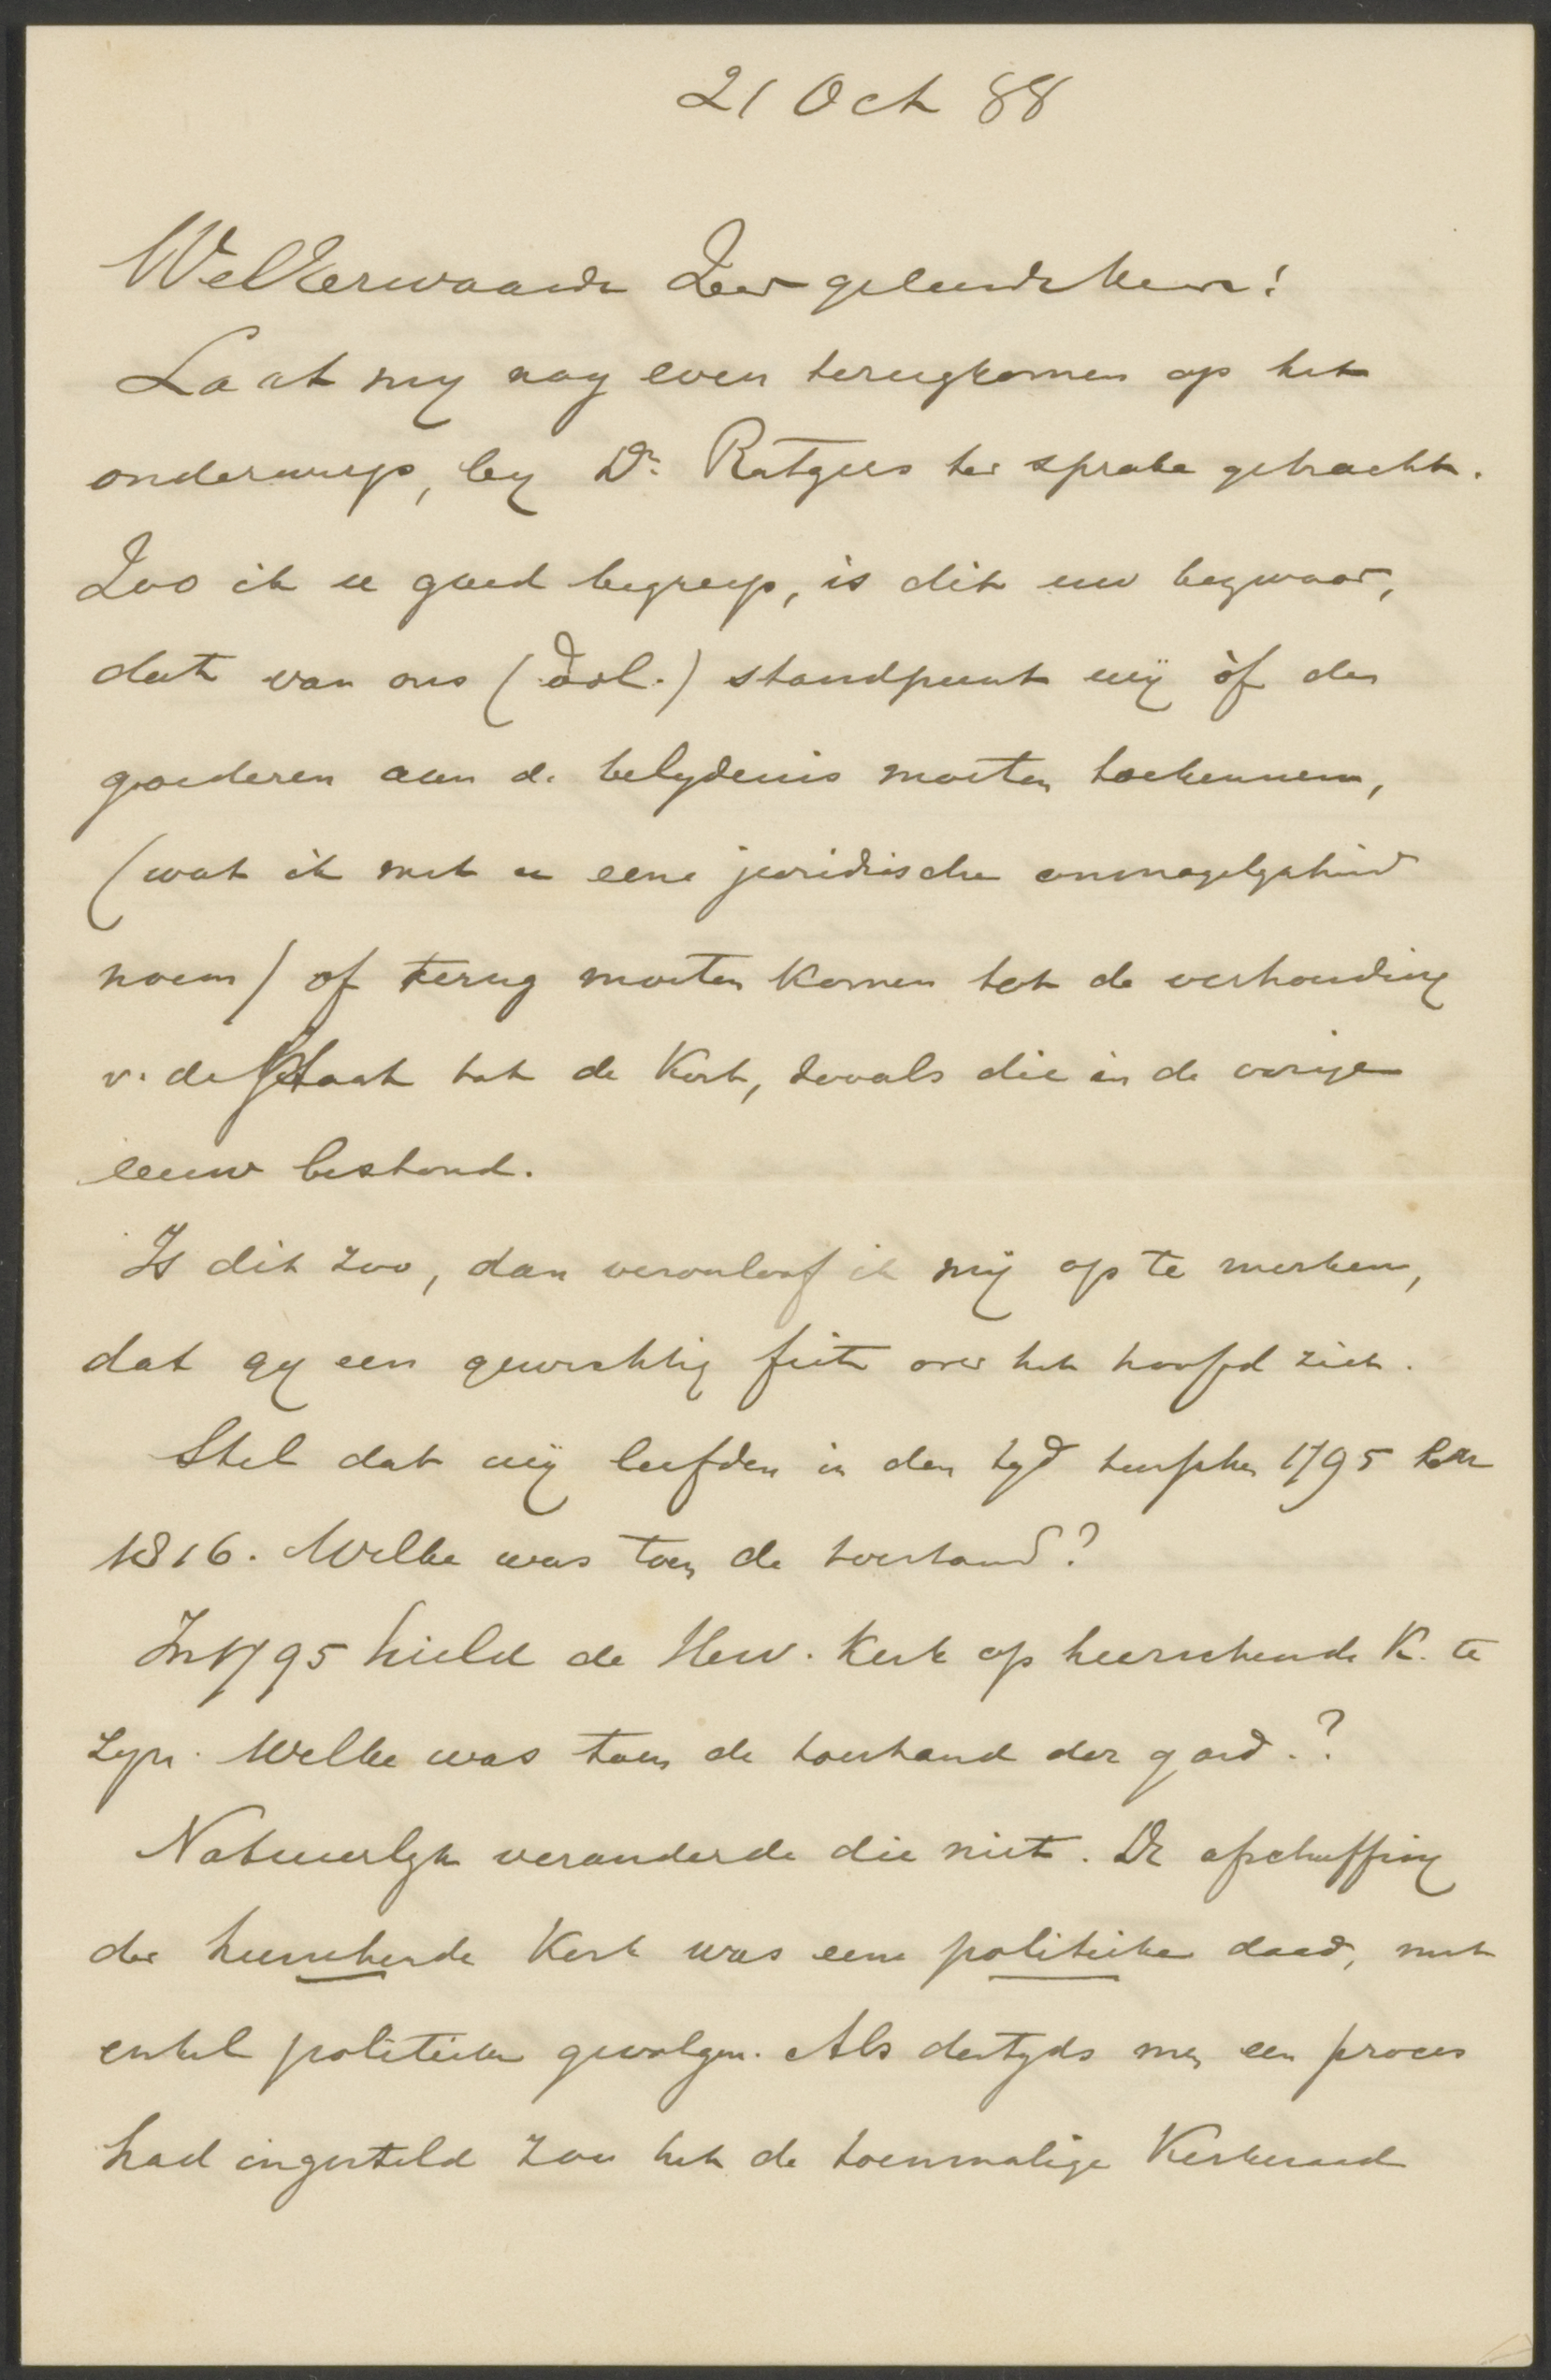 21 Oct 88
WelEerwaarde Zeer geleerde Heer!
Laat my nog even terugkomen op het
onderwerp, by Dr. Rutgers ter sprake gebracht.
Zoo ik u goed begreep, is dit uw bezwaar,
dat van ons (dol.) standpunt wij òf de
goederen aan de belydenis moeten toekennen,
(wat ik met u eene juridische onmogelykheid
noem) of terug moeten komen tot de verhouding
v. de Staat tot de Kerk, zooals die in de vorige
eeuw bestond.
Is dit zoo, dan veroorloof ik mij op te merken,
dat gy een gewichtig feit over het hoofd ziet.
Stel dat wij leefden in den tyd tusschen 1795 en
1816. Welke was toen de toestand?
In 1795 hield de Herv. Kerk op heerschende K. te
zyn. Welke was toen de toestand der goed.?
Natuurlyk veranderde die niet. De afschaffing
der heerschende Kerk was eene politieke daad, met
enkel politieke gevolgen. Als destyds men een proces
had ingesteld zou het de toenmalige Kerkeraad